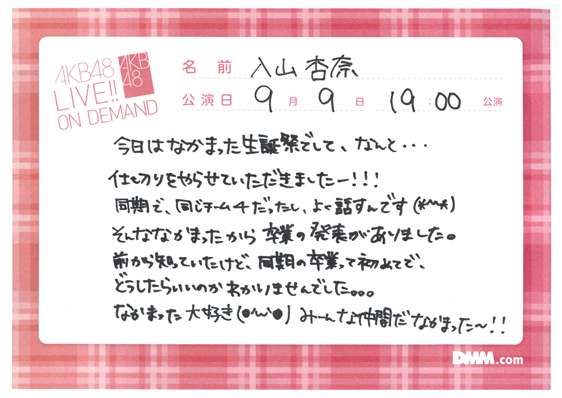 AKB48
LIVE!!
ON DEMAND
AKB
48
名前 入山杏奈
公演日 9月9日 19:00 公演
今日はなかまった生誕祭でして、なんと・・・
仕切りをやらせていただきましたー!!!
同期で、同じチーム4だったし、よく話すんです(*^^*)
そんななかまったから 卒業の発表がありました。
前から知っていたけど、同期の卒業って初めてで、
どうしたらいいのかわかりませんでした。。。
なかまった大好き(●^^●) みーんな仲間だなかまった〜!!
DMM.com